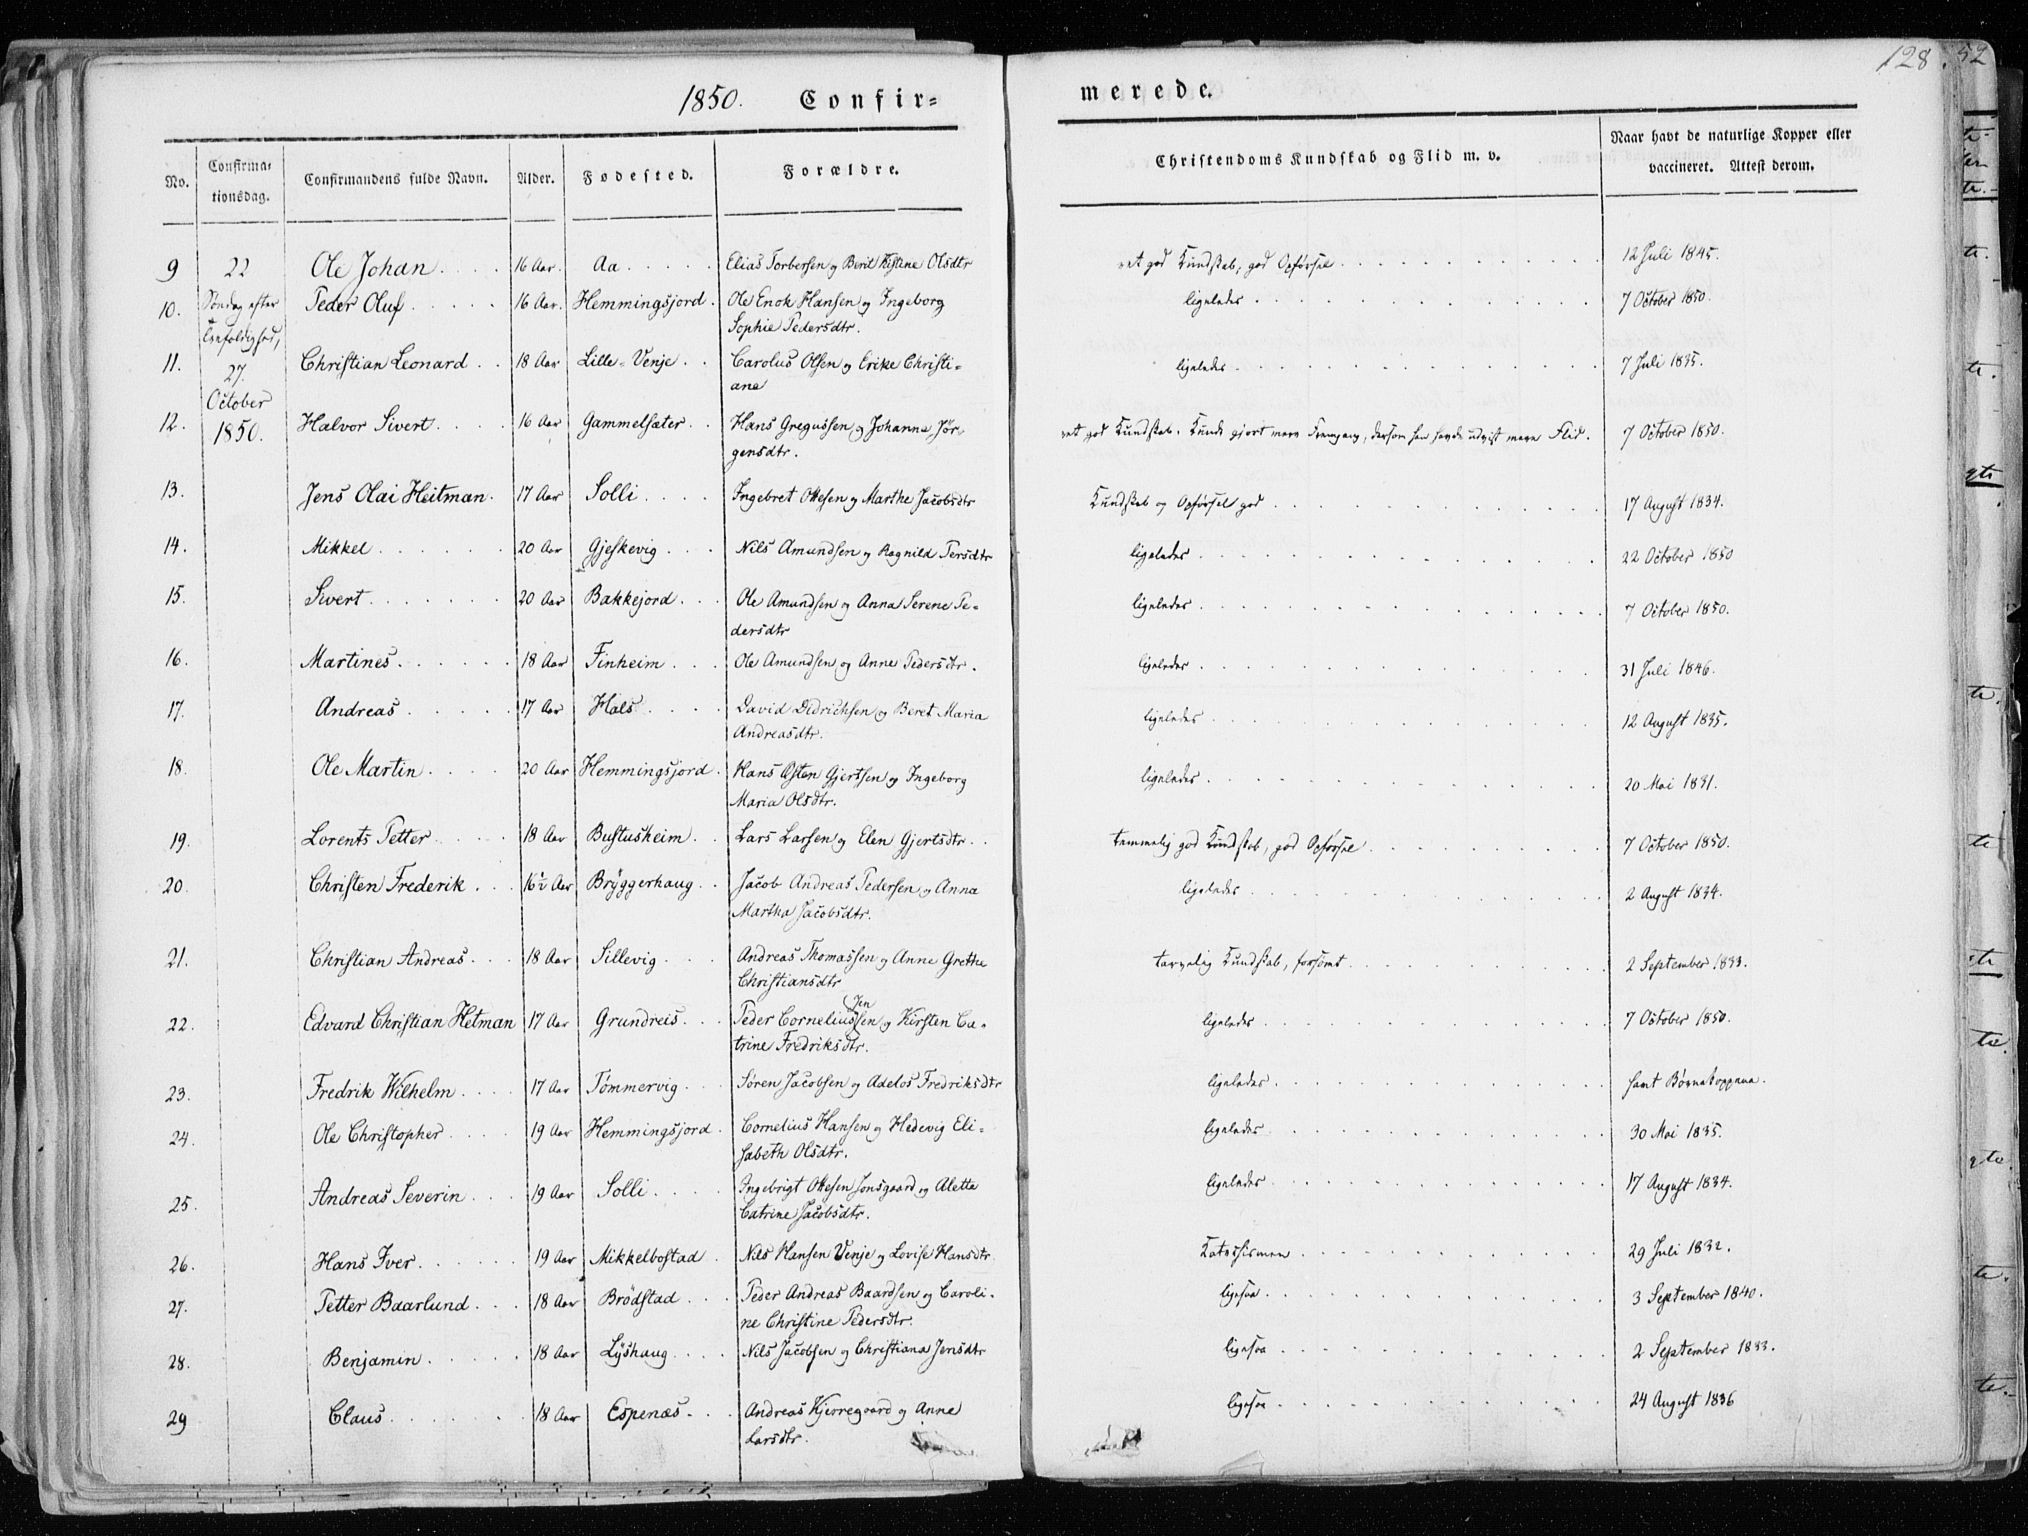 1850. Confir= merede. 128. 52
No. Confirma-tionsdag. Confirmandens fulde Navn. Alder. Fødested. Forældre. Christendoms Kundskab og Flid m. v. Naar havt de naturlige Kopper eller vaccineret. Attest derom.
22 Søndag efter Trefoldighed, 27. October 1850.
9 Ole Johan 16 Aar. Aa Elias Torbersen og Berit Kistine Olsdtr ret god Kundskab, god Opførsel 12 Juli 1845.
10. Peder Oluf 16 Aar. Hemmingsjord Ole Enok Hansen og Ingeborg
Sophie Pedersdtr. ligeledes 7 October 1850.
11. Christian Leonard 18 Aar Lille-Venje Carolus Olsen og Erike Christi=
ane ligeledes 7 Juli 1835.
12. Halvor Sivert 16 Aar Gammelsæter Hans Gregussen og Johanna Jør
gensdtr. ret god Kundskab. Kunde gjort mere Fremgang, dersom han havde udvist mere Flid. 7 October 1850.
13. Jens Olai Heitman 17 Aar Solli Ingebret Ottesen og Marthe Jacobsdtr Kundskab og Opførsel god 17 August 1834.
14. Mikkel 20 Aar Gjeskevig Nils Amundsen og Ragnild Persdtr ligeledes 22 October 1850
15. Sivert 20 Aar Bakkejord Ole Amundsen og Anna Serene Pe-
dersdtr ligeledes 7 October 1850.
16. Martines 18 Aar Finheim Ole Amundsen og Anne Pedersdtr. ligeledes 31 Juli 1846.
17. Andreas 17 Aar Hals David Didrichsen og Beret Maria
Andreasdtr. ligeledes 12 August 1835.
18. Ole Martin 20 Aar Hemmingsjord Hans Østen Gjertsen og Ingeborg
Maria Olsdtr. ligeledes 20 Mai 1831.
19. Lorents Petter 18 Aar Bustusheim Lars Larsen og Elen Gjertsdtr. temmelig god Kundskab, god Opførsel 7 October 1850.
20. Christen Frederik 16½ Aar Bryggerhaug Jacob Andreas Pedersen og Anna
Martha Jacobsdtr. ligeledes 2 August 1834.
21. Christian Andreas 18 Aar Sillevig Andreas Thomassen og Anne Grethe
Christiansdtr tarvelig Kundskab, forsømt 2 September 1833.
22. Edvard Christian Hetman 17 Aar Grundreis Peder Corneliussen og Kirsten Ca-
trine Fredriksdtr. ligeledes 7 October 1850.
23. Fredrik Wilhelm 17 Aar Tømmervig Søren Jacobsen og Adelos Fredriksdtr ligeledes havt Børnekopperne.
24. Ole Christopher 19 Aar Hemmingsjord Cornelius Hansen og Hedevig Eli-
sabeth Olsdtr. ligeledes 30 Mai 1835.
25. Andreas Severin 19 Aar Solli Ingebrigt Ottesen Jonsgaard og Aletta
Catrine Jacobsdtr. ligeledes 17 August 1834.
26. Hans Iver 19 Aar Mikkelbostad Nils Hansen Venje og Lovise Hansdtr Katechismen 29 Juli 1832.
27. Petter Baarlund 18 Aar Brödstad Peder Andreas Baardsen og Caroli-
ne Christine Pedersdtr. ligesaa 3 September 1840.
28. Benjamin 18 Aar Lyshaug Nils Jacobsen og Christiana Jensdtr ligesaa 2 September 1833.
29 Claus 18 Aar Espenæs Andreas Kjerregaard og Anne
Larsdtr. ligesaa 24 August 1836